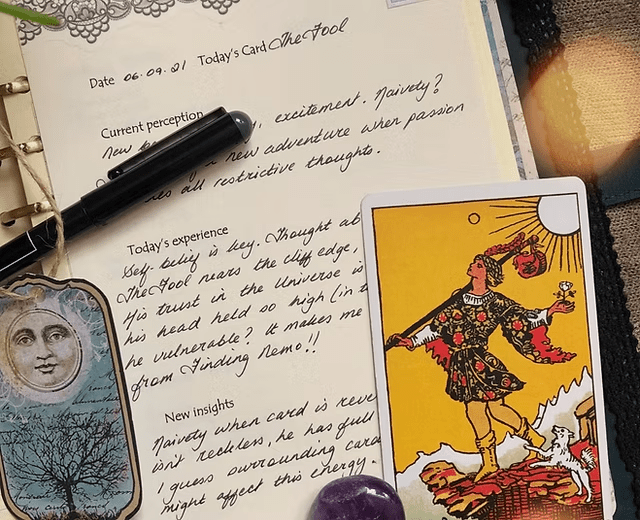 Date 06.09.21 Today's Card The Fool
Current perception
New excitement. Naivety?
new adventure when passion
all restrictive thoughts.
Today's experience
Self-belief is key. Thought
The Fool nears the cliff edge,
His trust in the Universe is
his head held so high (in
he vulnerable? It makes me
from Finding Nemo!!
New insights
Naivety when card is
isn't reckless, he has full
I guess surrounding
might affect this energy.